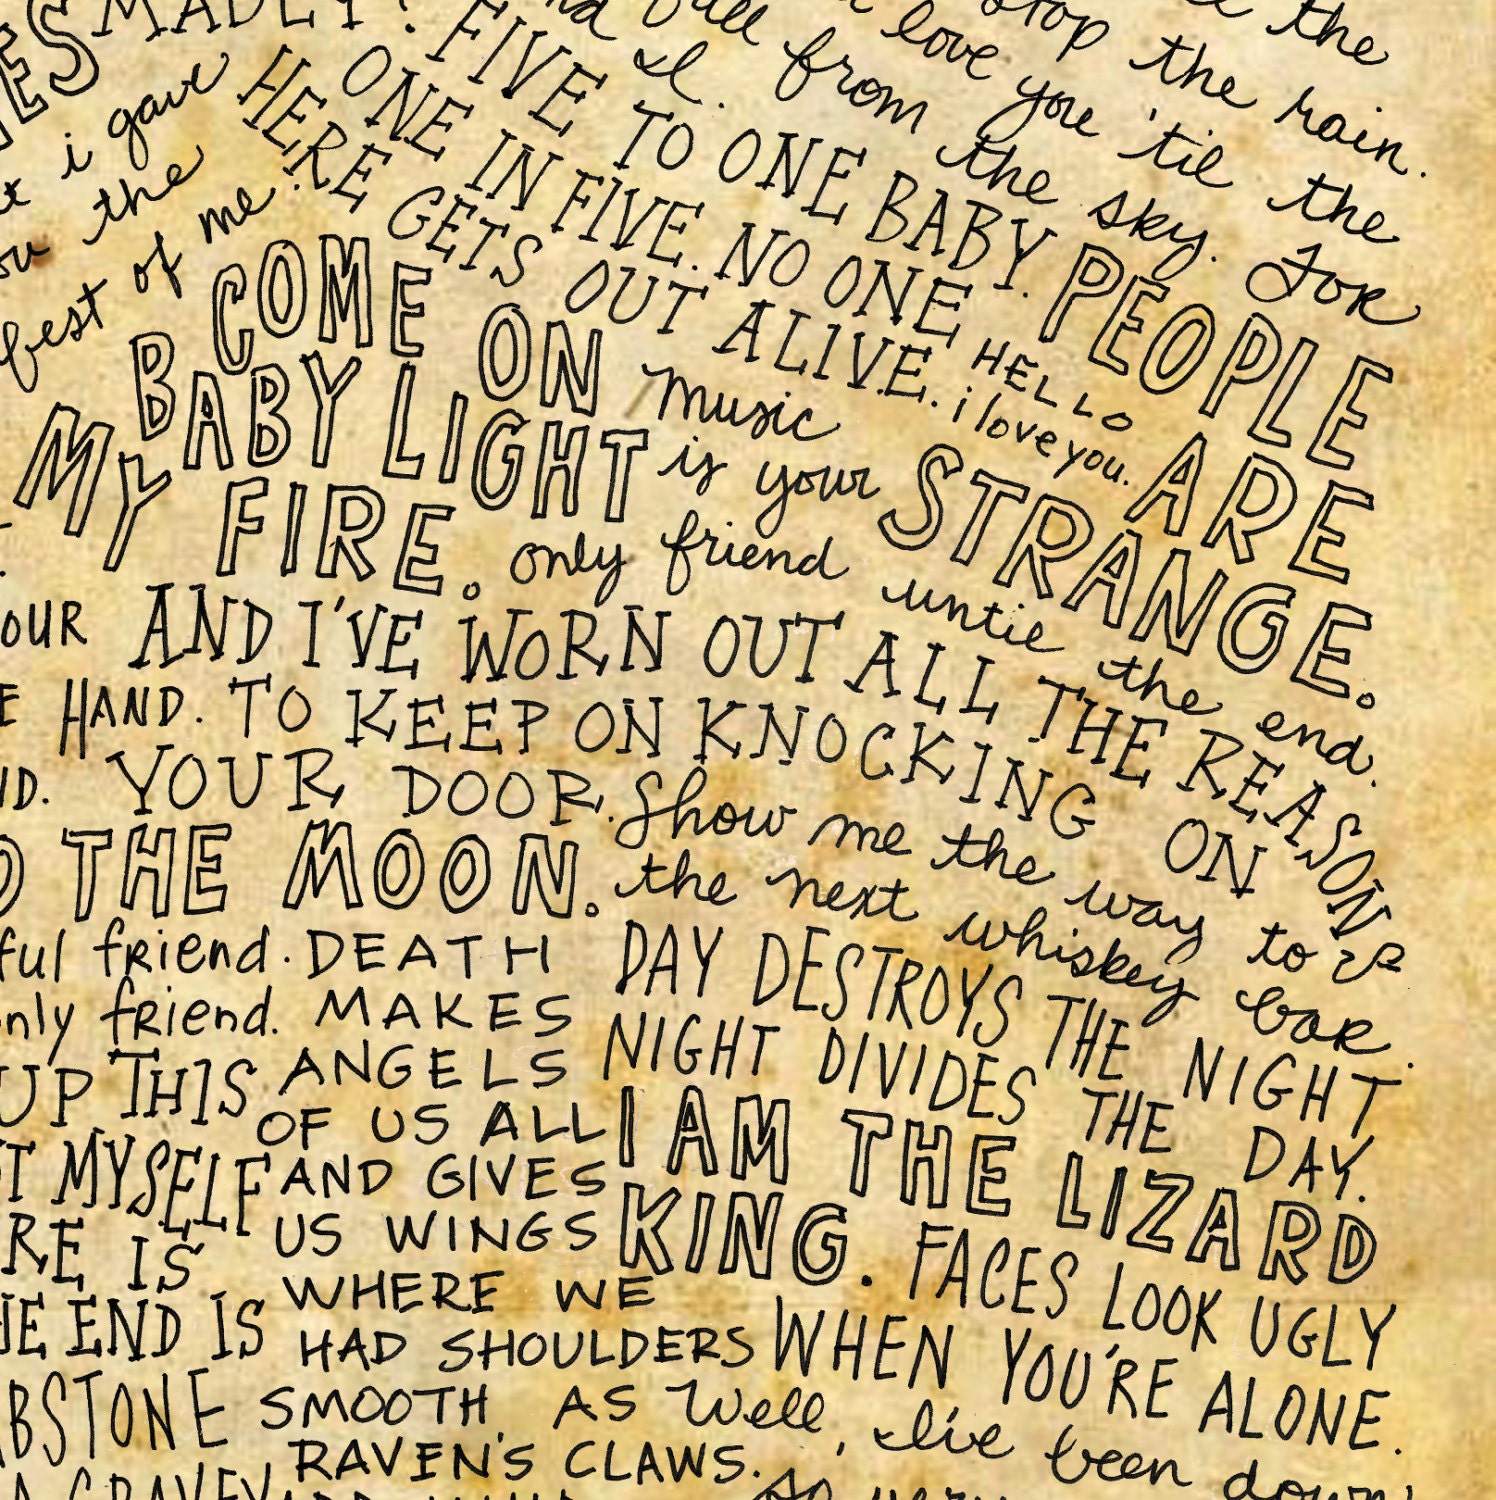 MADLY?
stop the rain.
love you 'til the
fall from the sky. For
I.
i gave
the
best of me.
FIVE TO ONE BABY.
ONE IN FIVE. NO ONE
HERE GETS OUT ALIVE.
HELLO
i love you.
PEOPLE
ARE
STRANGE.
COME ON
BABY LIGHT
MY FIRE.
music
is your
only friend until the end.
AND I'VE WORN OUT ALL THE REASONS
HAND. TO KEEP ON KNOCKING ON
YOUR DOOR.
Show me the way to
the next whiskey bar.
THE MOON.
friend.
friend.
DEATH
MAKES
ANGELS
OF US ALL
AND GIVES
US WINGS
WHERE WE
HAD SHOULDERS
SMOOTH AS
RAVEN'S CLAWS.
DAY DESTROYS THE NIGHT
NIGHT DIVIDES THE DAY.
I AM THE LIZARD
KING.
FACES LOOK UGLY
WHEN YOU'RE ALONE.
Well, I've been down
so very
UP THIS
MYSELF
IS
END IS